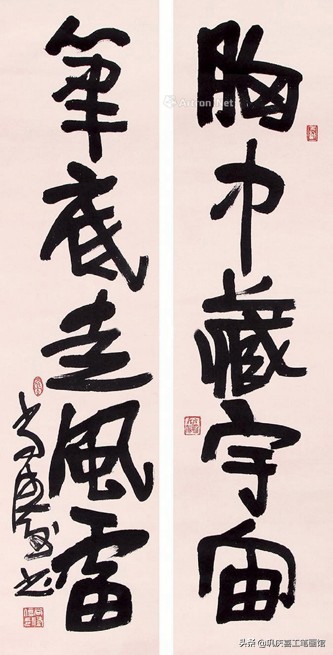 胸中藏宇宙
筆底走風雷
Artron.Net
头条 @巩庆喜工笔画馆